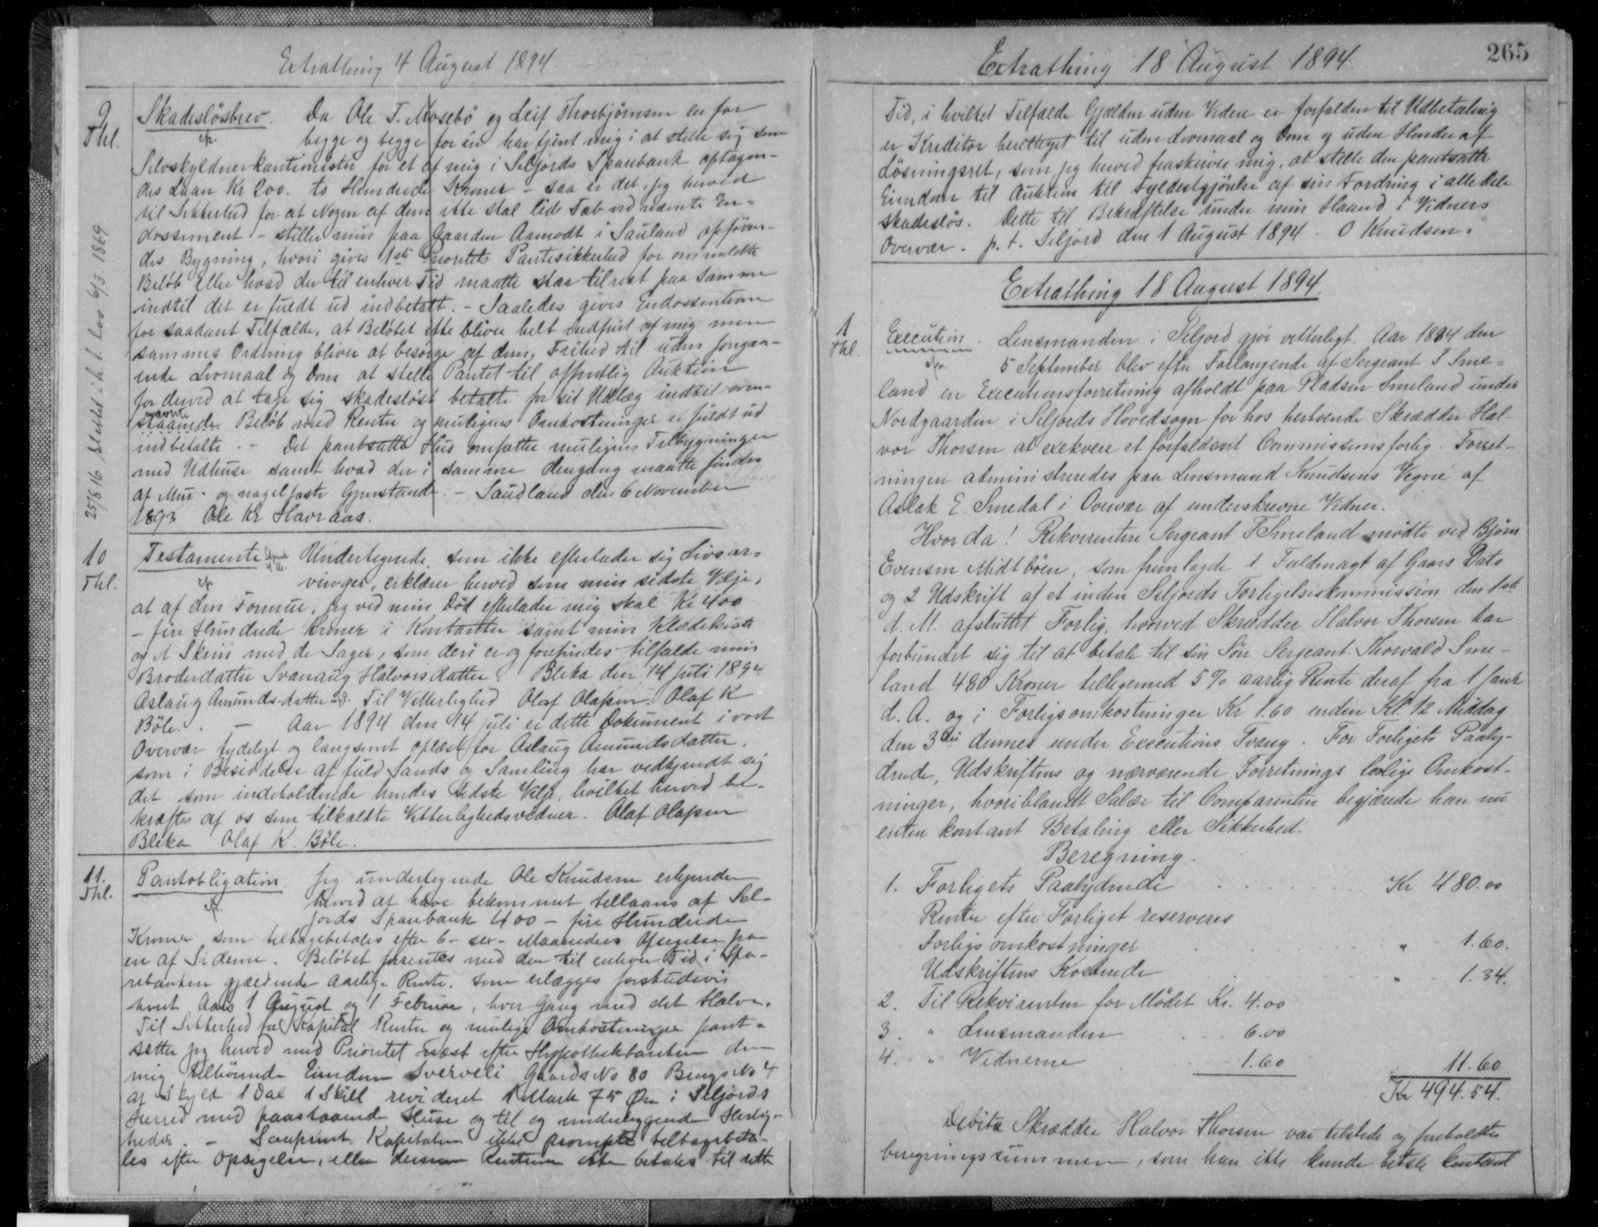 Extrathing 4 August 1894
9
Thl.
Skadesløsbrev. Da Ole T. Mosebø og Leif Thorbjørnsen en for
begge og begge for én har tjent mig i at stille sig som
Selvskyldnerkautionister for et af mig i Seljords Sparebank optagen-
des Laan Kr 200. to Hundrede Kroner - saa er det, jeg herved
til Sikkerhed for at Nogen af dem ikke skal lide Tab ved nævnte En-
dossement - stiller min paa Gaarden Aamodt i Sauland opføren-
des Bygning, hvori gives 1ste Prioritets Pantesikkerhed for ommeldte
Beløb Eller hvad der til enhver Tid maatte staa tilrest paa samme
indtil det er fuldt ud indbetalt. - Saaledes gives Endossenterne
for saadant Tilfælde, at Beløbet ikke bliver helt indfriet af mig men
sammes Ordning bliver at besørge af dem, Frihed til uden forgaa-
ende Lovmaal og Dom at stille Pantet til offentlig Auktion
for derved at tage sig skadesløst betalte for sit Udlæg indtil oven-
nævnte
staaende Beløb med Renter og muligens Omkostninger er fuldt ud
indbetalte. - Det pantsatte Hus omfatter muligens Tilbygninger
med Udhuse samt hvad der i samme dengang maatte findes
af Mur- og nagelfaste Gjenstande. - Saudland den 6 November
1893 Ole Kr Havraas.
25/8 16 slettet i h. t. lov 6/3 1869
10
Thl.
Testamente Undertegnede, som ikke efterlader sig Livsar-
vinger, erklærer herved som min sidste Vilje,
at af den Formue, jeg ved min Død efterlader mig skal Kr 400
- fire Hundrede Kroner i Kontanter samt min Klædekiste
og et Skrin med de Sager, som deri er og forefindes tilfalde min
Broderdatter Svanaug Halvorsdatter. Bleka den 14 juli 1894
Aslaug Amunds-datter Til Vitterlighed Olaf Olafsen Olaf K
Bøle. - Aar 1894 den 14 juli er dette Dokument i vort
Overvær tydeligt og langsomt oplæst for Aslaug Amundsdatter,
som i Besiddelse af fuld Sands og Samling har vedkjendt sig
det som indeholdende hendes sidste Vilje, hvilket herved be-
kræftes af os som tilkaldte Vitterlighedsvidner. Olaf Olafsen
Bleka Olaf K. Bøle.
11.
Thl.
Pantobligation Jeg undertegnede Ole Knudsen erkjender
herved at have bekommet tillaans af Sel-
jords Sparebank 400 - fire Hundrede
Kroner som tilbagebetales efter 6 - sex - Maaneders Opsigelse fra
en af Siderne. Beløbet forrentes med den til enhver Tid i Spa-
rebanken gjældende aarlige Rente, som erlægges forskudsvis
hvert Aars 1 August og 1 Februar, hver Gang med det Halve.
Til Sikkerhed for Kapital Renter og mulige Omkostninger pant-
sætter jeg herved med Prioritet næst efter Hypothekbanken den
mig tilhørende Eiendom Sverveli Gaards No 80 Brugs No 4
af Skyld 1 Dal 1 Skill revideret 1 Mark 75 Øre i Seljords
Herred med paastaaende Huse og til og underliggende Herlig-
heder. - Saafremt Kapitalen ikke prompte tilbagebeta-
les efter Opsigelse, eller dersom Renterne ikke betales til rette
265
Extrathing 18 August 1894
Tid, i hvilket Tilfælde Gjælden uden Videre er forfalden til Udbetaling
er Kreditor berettiget til uden Lovmaal og Dom og uden Hinder af
Løsningsret, som jeg herved fraskriver mig, at stille den pantsatte
Eiendom til Auktion til Fyldestgjørelse af sin Fordring i alle Dele
skadesløs. Dette til Bekræftelse under min Haand i Vidners
Overvær. p. t. Seljord den 1 August 1894. O Knudsen.
Extrathing 18 August 1894
1
Thl.
Execution. Lensmanden i Seljord gjør vitterligt. Aar 1894 den
5 September blev efter Forlangende af Sergeant T Sme-
land en Executionsforretning afholdt paa Pladsen Smeland under
Nordgaarden i Seljords Hovedsogn for hos herboende Skrædder Hal-
vor Thorsen at exekvere et forfaldent Commissionsforlig. Forret-
ningen administreredes paa Lensmand Knudsens Vegne af
Aslak E Smedal i Overvær af underskrevne Vidner.
Hvor da! Rekvirenten Sergeant T Smeland mødte ved Bjørn
Evensen Midtbøen, som fremlagde 1. Fuldmagt af Gaars Dato
og 2 Udskrift af et inden Seljords Forligelseskommission den 1ste
d. M. afsluttet Forlig, hvorved Skrædder Halvor Thorsen har
forbundet sig til at betale til sin Søn Sergeant Thorvald Sme-
land 480 Kroner tilligemed 5 % aarlig Rente deraf fra 1 Janr
d. A. og i Forligsomkostninger Kr 1.60 inden Kl 12 Middag
den 3die dennes under Executions Tvang. For Forligets Paaly-
dende, Udskriftens og nærværende Forretnings lovlige Omkost-
ninger, hvoriblandt Salær til Comparenten begjærede han nu
enten kontant Betaling eller Sikkerhed.
Beregning.
1. Forligets Paalydende Kr 480.00
Renter efter Forliget reserveres
Forligsomkostninger " 1.60.
Udskriftens Kostende " 1.34.
2. Til Rekvirenten for Mødet Kr. 4.00
3 " Lensmanden 6.00
4. " Vidnerne 1.60 11.60
Kr 494.54.
Debitor Skrædder Halvor Thorsen var tilstede og foreholdtes
beregningssummen, som han ikke kunde betale kontant